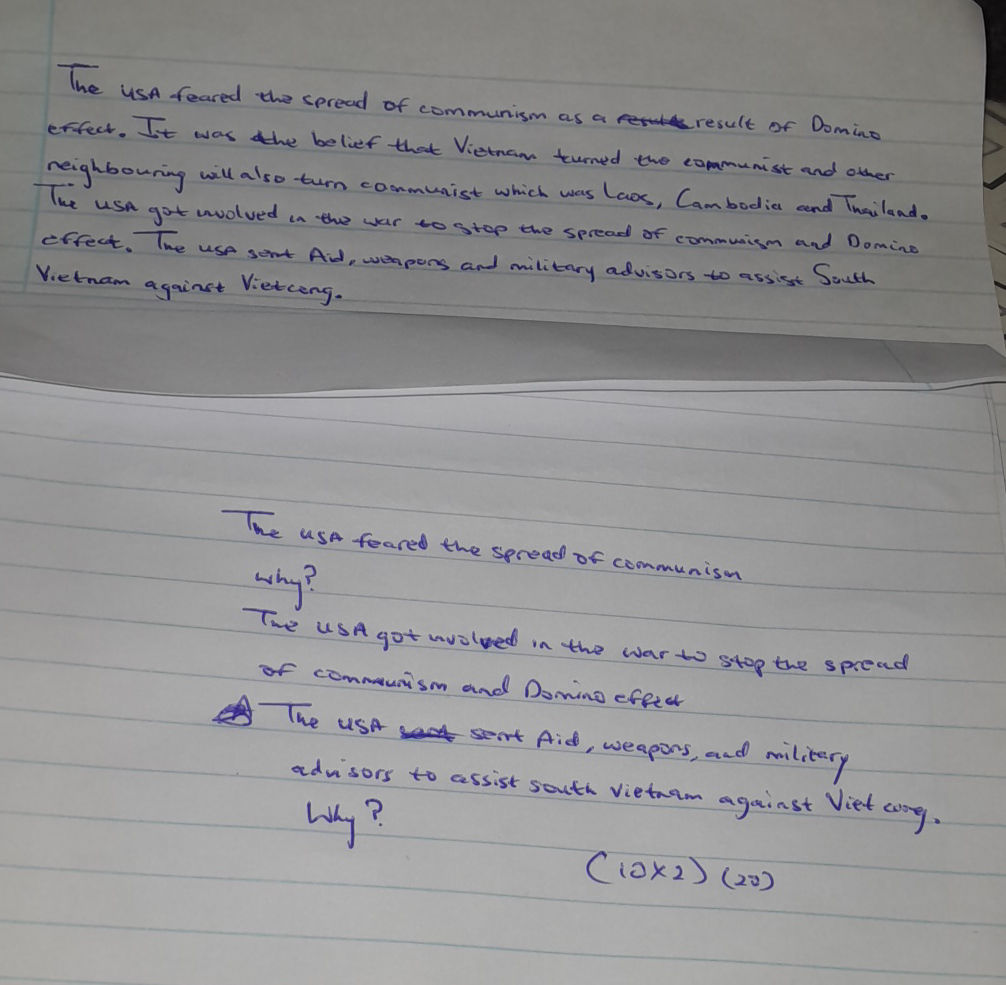 The USA feared the spread of communism as a result of Domino
effect. It was the belief that Vietnam turned the communist and other
neighbouring will also turn communist which was Laos, Cambodia and Thailand.
The USA got involved in the war to stop the spread of communism and Domino
effect. The USA sent Aid, weapons and military advisors to assist South
Vietnam against Vietcong.
The USA feared the spread of communism
why?
The USA got involved in the war to stop the spread
of communism and Domino effect
The USA sent Aid, weapons, and military
advisors to assist south Vietnam against Viet cong.
Why?
(10x2) (20)